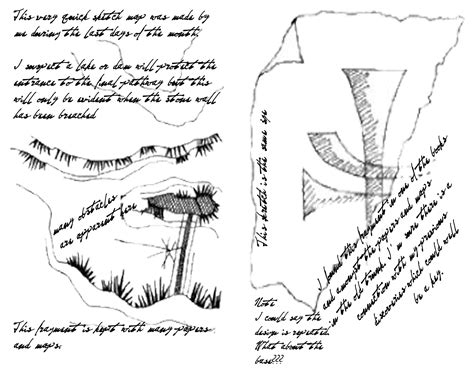 This very quick sketch map was made by
me during the last days of the month.
I suspect a lake or dam will protect the
entrance to the final pathway but this
will only be evident when the stone wall
has been breached
many obstacles
are apparent here
This fragment is kept with many papers
and maps.
This sketch is the same size
I found this fragment in one of the books
and amongst the papers and maps
in the old trunk. I'm sure there is a
connection with my previous
discoveries which could well
be a key.
Note
I could say the
design is repeated.
What about the
base???